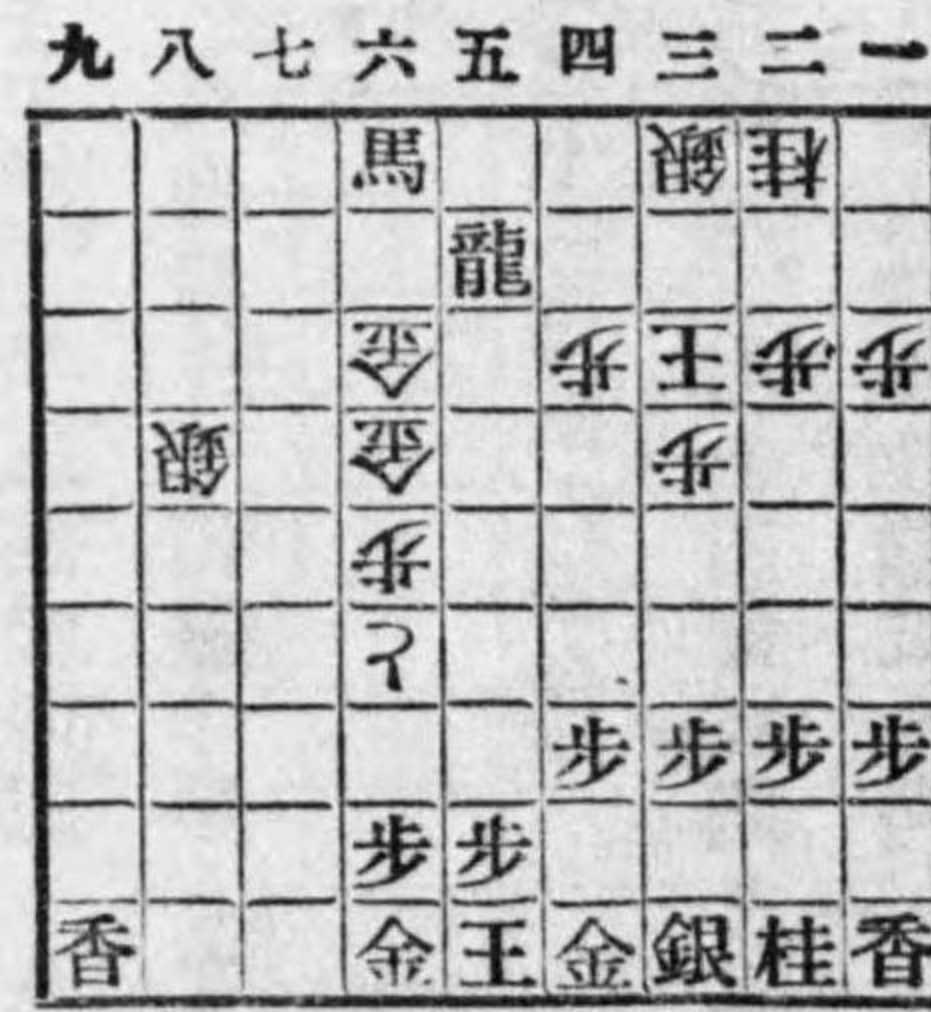 九八七六五四三二一
馬銀桂
龍
金歩王歩歩
銀金歩
歩
と
歩歩歩歩
歩歩
香金王金銀桂香